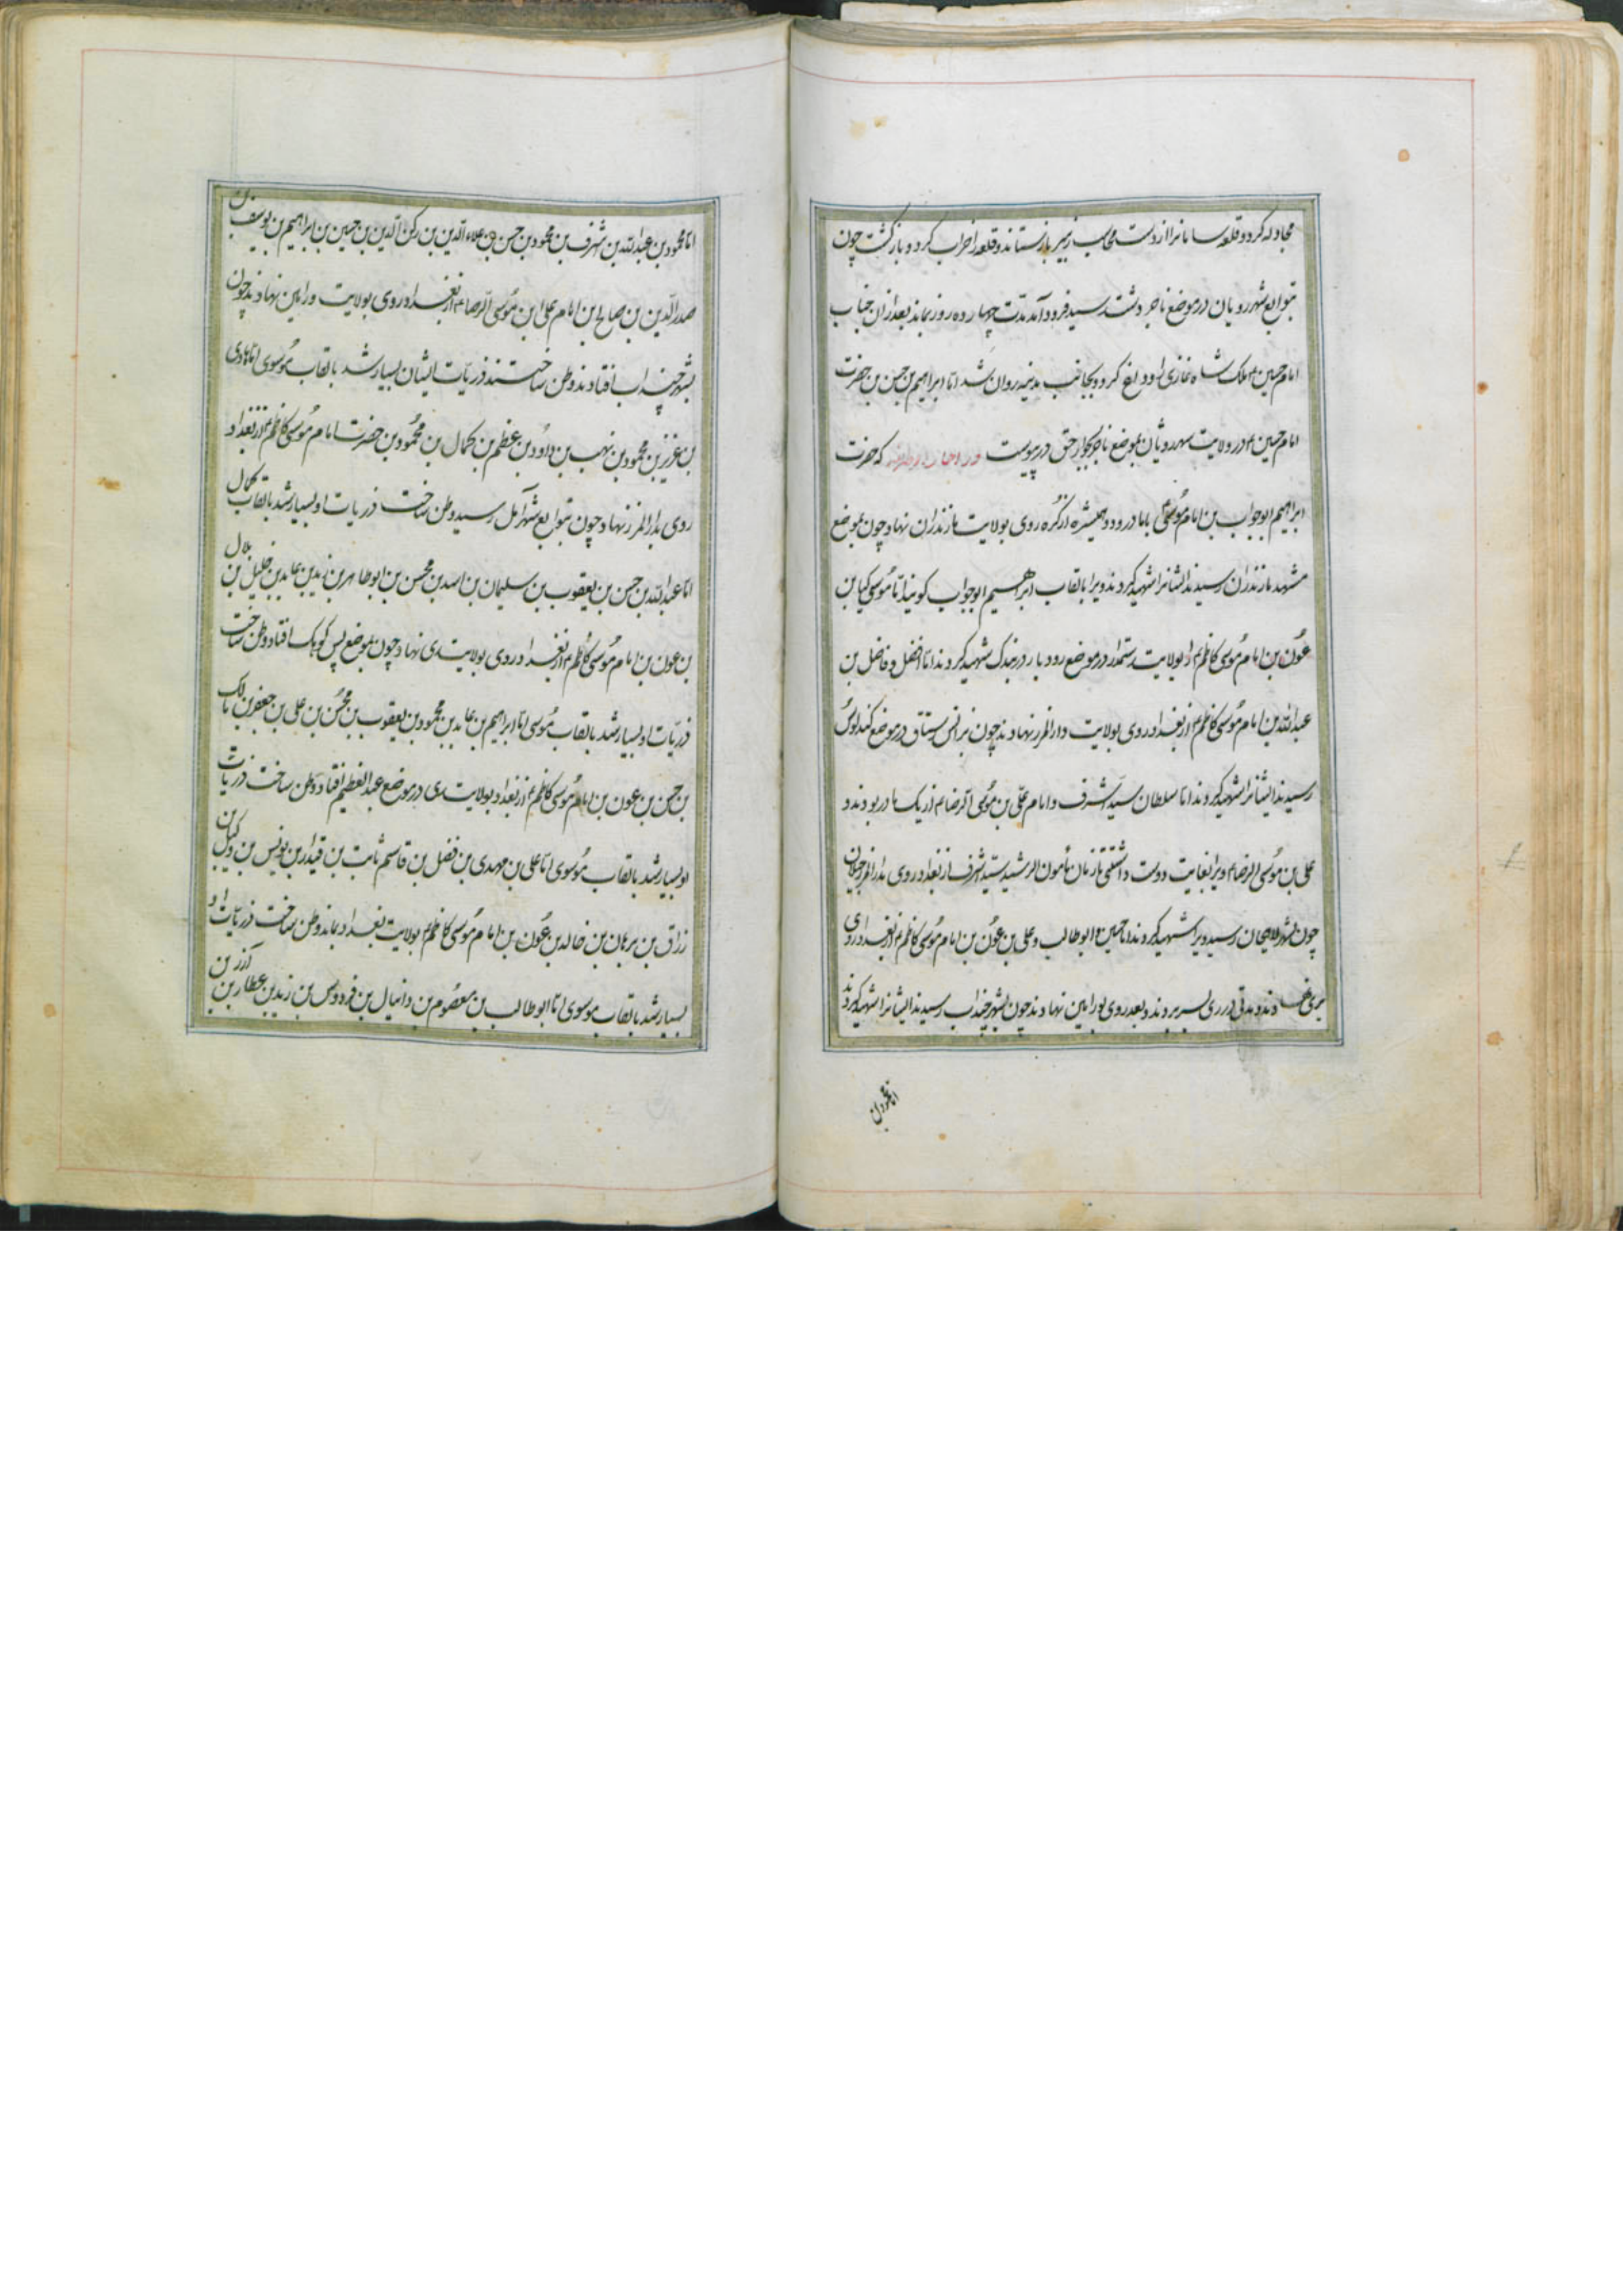 مجادله کرد و قلعه سامانرا از دست محاسب زبیر بازستاند و قلعه را خراب کرد و بازگشت چون
بتوابع شهر رویان در موضع ناجر دشت رسید فرود آمد مدت چهارده روز بماند بعد از آن جناب
امام حسین ملک شاه غازی را وداع کرد و بجانب مدینه روان شد اما ابراهیم بن حسن بن حضرت
امام حسین در ولایت بموضع بجوار حق در پیوست که حضرت
ابراهیم ابوجواب بن امام موسی با مادر و دو همشیره از کره روی بولایت مازندران نهاد چون بموضع
مشهد مازندران رسیدند ایشانرا شهید کردند ویرا بالقاب ابراهیم ابوجواب کویند اما موسی کیا بن
عون بن امام موسی کاظم از بولایت رستمدار در موضع رودبار در شهید کردند اما افضل و فاضل بن
عبدالله بن امام موسی کاظم از بغداد روی بولایت دارالمرز نهادند چون رستاق در موضع کندلوس
رسیدند ایشانرا شهید کردند اما سلطان سید اشرف و امام علی بن موسی الرضا از یک مادر بودند و
علی بن موسی الرضا ویرا بغایت دوست داشتی از زمان مأمون الرشید سید اشرف از بغداد روی بدارالمرز
چون بشهر لاهیجان رسید ویرا شهید کردند اما حسین و ابوطالب و علی بن عون بن امام موسی کاظم از بغداد روی
بری نهادند و مدتی در ری بسر بردند و بعد روی بورامین نهادند چون بشهر خینداب رسیدند ایشانرا شهید کردند
اما محمود بن
اما محمود بن عبدالله بن شرف بن محمود بن حسن بن علاء الدین بن رکن الدین بن حسین بن ابراهیم بن یوسف بن
صدر الدین بن صالح بن امام علی ابن موسی الرضا از بغداد روی بولایت ورامین نهادند چون
بشهر خینداب افتادند وطن ساختند ذریات ایشان بسیار شد بالقاب موسوی اما هادی
بن عزیز بن محمود بن بن داود بن عظم بن کمال بن محمود بن حضرت امام موسی کاظم از بغداد
روی بدارالمرز نهاد چون بتوابع شهر آمل رسید وطن ساخت ذریات او بسیار شد بالقاب کمال
اما عبدالله بن حسن بن یعقوب بن سلیمان بن اسد بن محسن بن ابوطاهر بن زید بن عابد بن خلیل بن بلال
بن عون بن امام موسی کاظم از بغداد روی بولایت ری نهاد چون بموضع پس کوهک افتاد وطن ساخت
ذریات او بسیار شد بالقاب موسی اما ابراهیم بن عابد بن محمود بن یعقوب بن محسن بن علی بن جعفر بن مالک
بن حسن بن عون بن امام موسی کاظم از بغداد بولایت ری در موضع عبدالعظیم افتاد وطن ساخت ذریات
او بسیار شد بالقاب موسوی اما علی بن مهدی بن فضل بن قاسم ثابت بن قیدار بن یونس بن وکیل بن
زراق بن برهان بن خالد بن عون بن امام موسی کاظم بولایت بغداد بماند وطن ساخت ذریات او
بسیار شد بالقاب موسوی اما ابوطالب بن معصوم بن دانیال بن فردوس بن زید بن عطار بن آذر بن